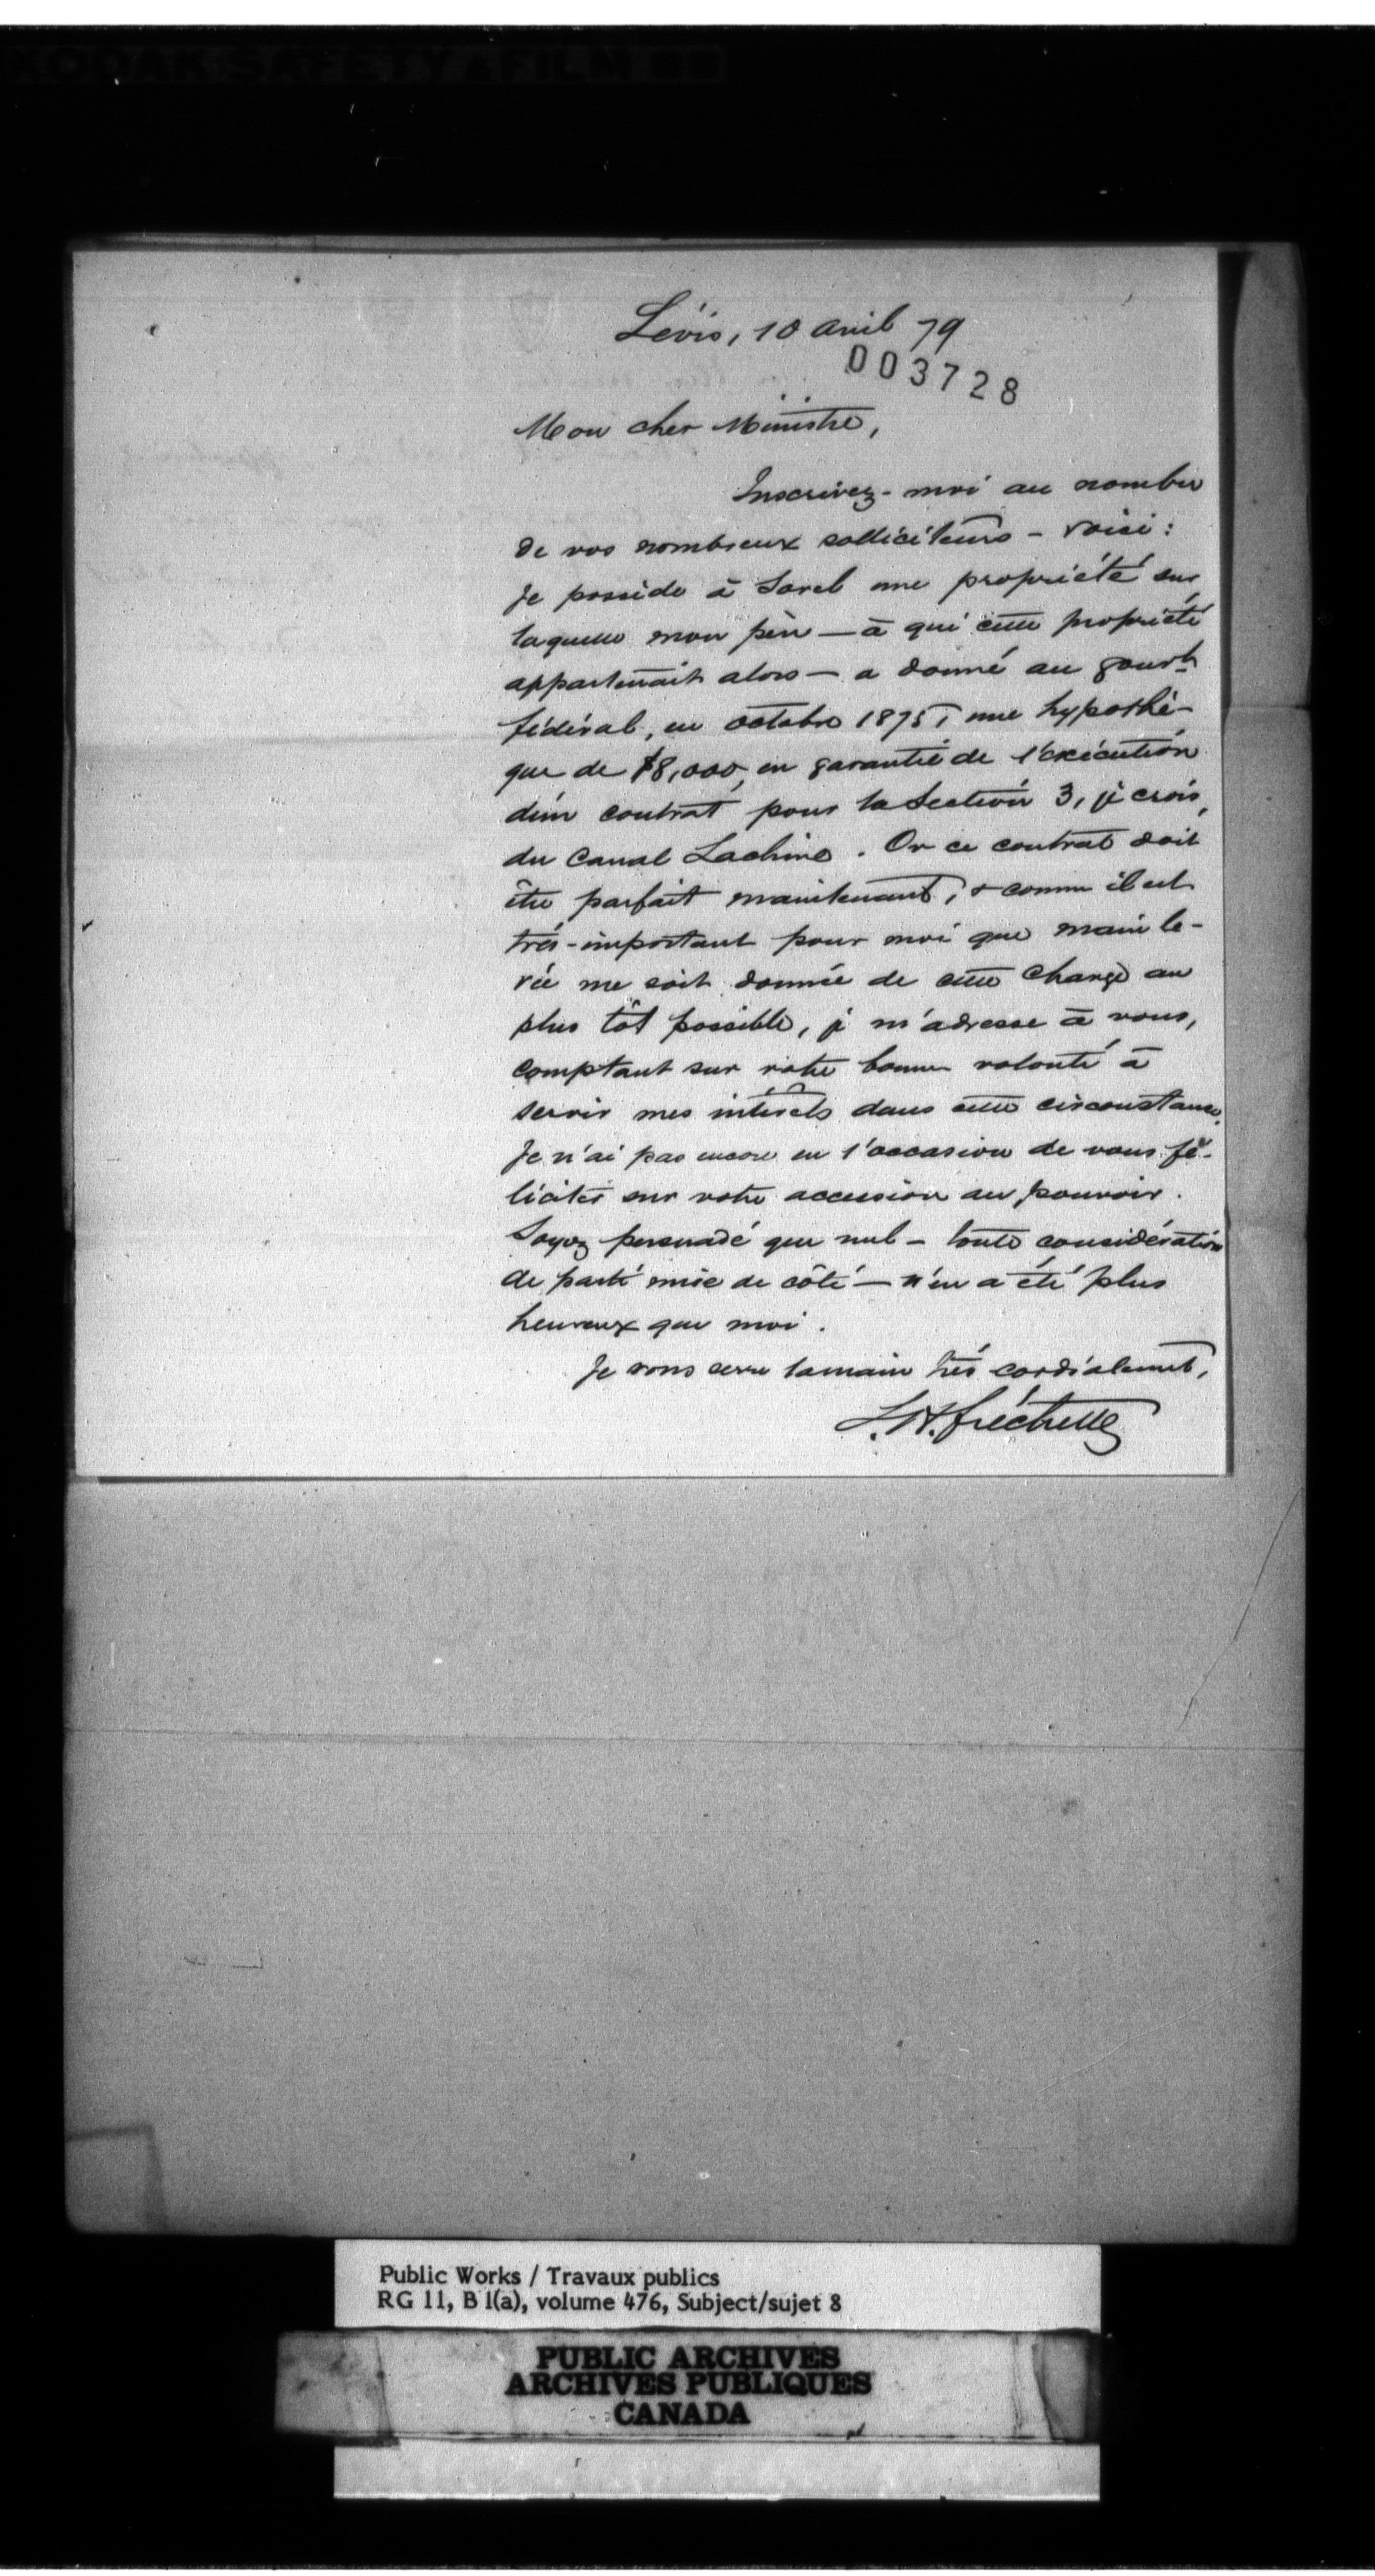 KODAK SAFETY FILM
Lévis, 10 avril 79
003728
Mon cher Ministre,
Inscrivez-moi au nombre
de vos nombreux solliciteurs – voici :
Je possède à Sorel une propriété sur
laquelle mon père — à qui cette propriété
appartenait alors — a donné au gouvt
fédéral, en octobre 1875, une hypothè-
que de $8,000, en garantie de l'exécution
d'un contrat pour la Section 3, je crois,
du Canal Lachine. Or ce contrat doit
être parfait maintenant, & comme il est
très-important pour moi que main le-
vée me soit donnée de cette charge au
plus tôt possible, je m'adresse à vous,
comptant sur votre bonne volonté à
servir mes intérêts dans cette circonstance.
Je n'ai pas encore eu l'occasion de vous fé-
liciter sur votre accession au pouvoir.
Soyez persuadé que nul – toute considération
de parti mise de côté — n'en a été plus
heureux que moi.
Je vous serre la main très cordialement,
L. H. Fréchette
Public Works / Travaux publics
RG 11, B 1(a), volume 476, Subject/sujet 8
PUBLIC ARCHIVES
ARCHIVES PUBLIQUES
CANADA